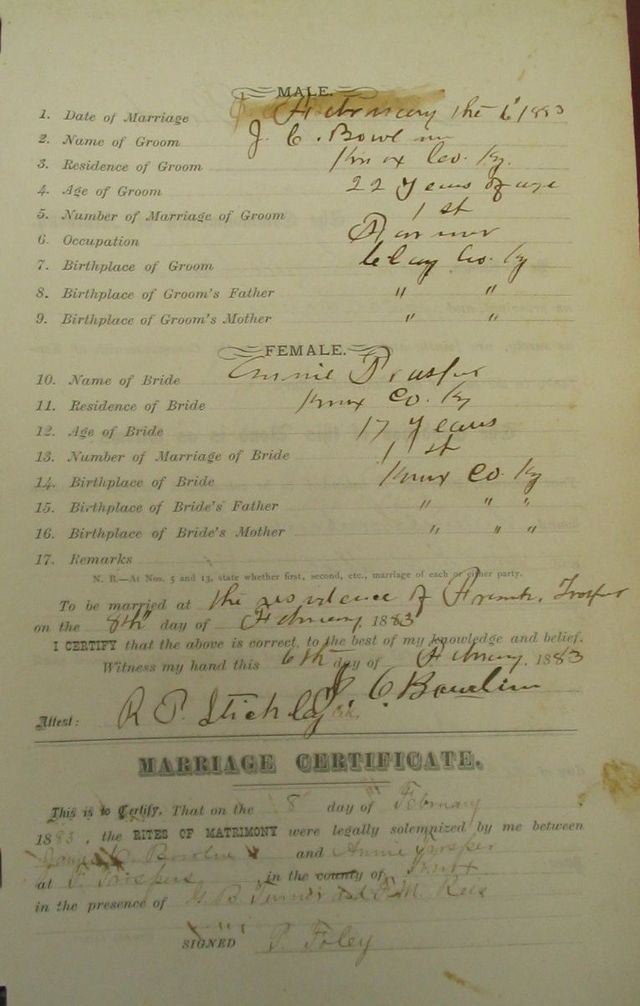 MALE.
1. Date of Marriage February the 6 1883
2. Name of Groom J. C. Bowlin
3. Residence of Groom Knox Co. Ky.
4. Age of Groom 22 years of age
5. Number of Marriage of Groom 1st
6. Occupation Farmer
7. Birthplace of Groom Clay Co. Ky
8. Birthplace of Groom's Father " "
9. Birthplace of Groom's Mother " "
FEMALE.
10. Name of Bride Annie
11. Residence of Bride Knox Co. Ky
12. Age of Bride 17 years
13. Number of Marriage of Bride 1 st
14. Birthplace of Bride Knox Co Ky
15. Birthplace of Bride's Father " " "
16. Birthplace of Bride's Mother " " "
17. Remarks
N. B.—At Nos. 5 and 13, state whether first, second, etc., marriage of each or either party.
To be married at the residence of Trosper
on the 8th day of February, 1883
I CERTIFY that the above is correct, to the best of my knowledge and belief.
Witness my hand this 6th day of February, 1883
J C Bowlin
Attest: R P
MARRIAGE CERTIFICATE.
This is to Certify, That on the 8 day of February
1883, the RITES OF MATRIMONY were legally solemnized by me between
James C. Bowlin and Annie Trosper
at F. Trospers, in the county of Knox
in the presence of G. B. Turner and
SIGNED P. Foley